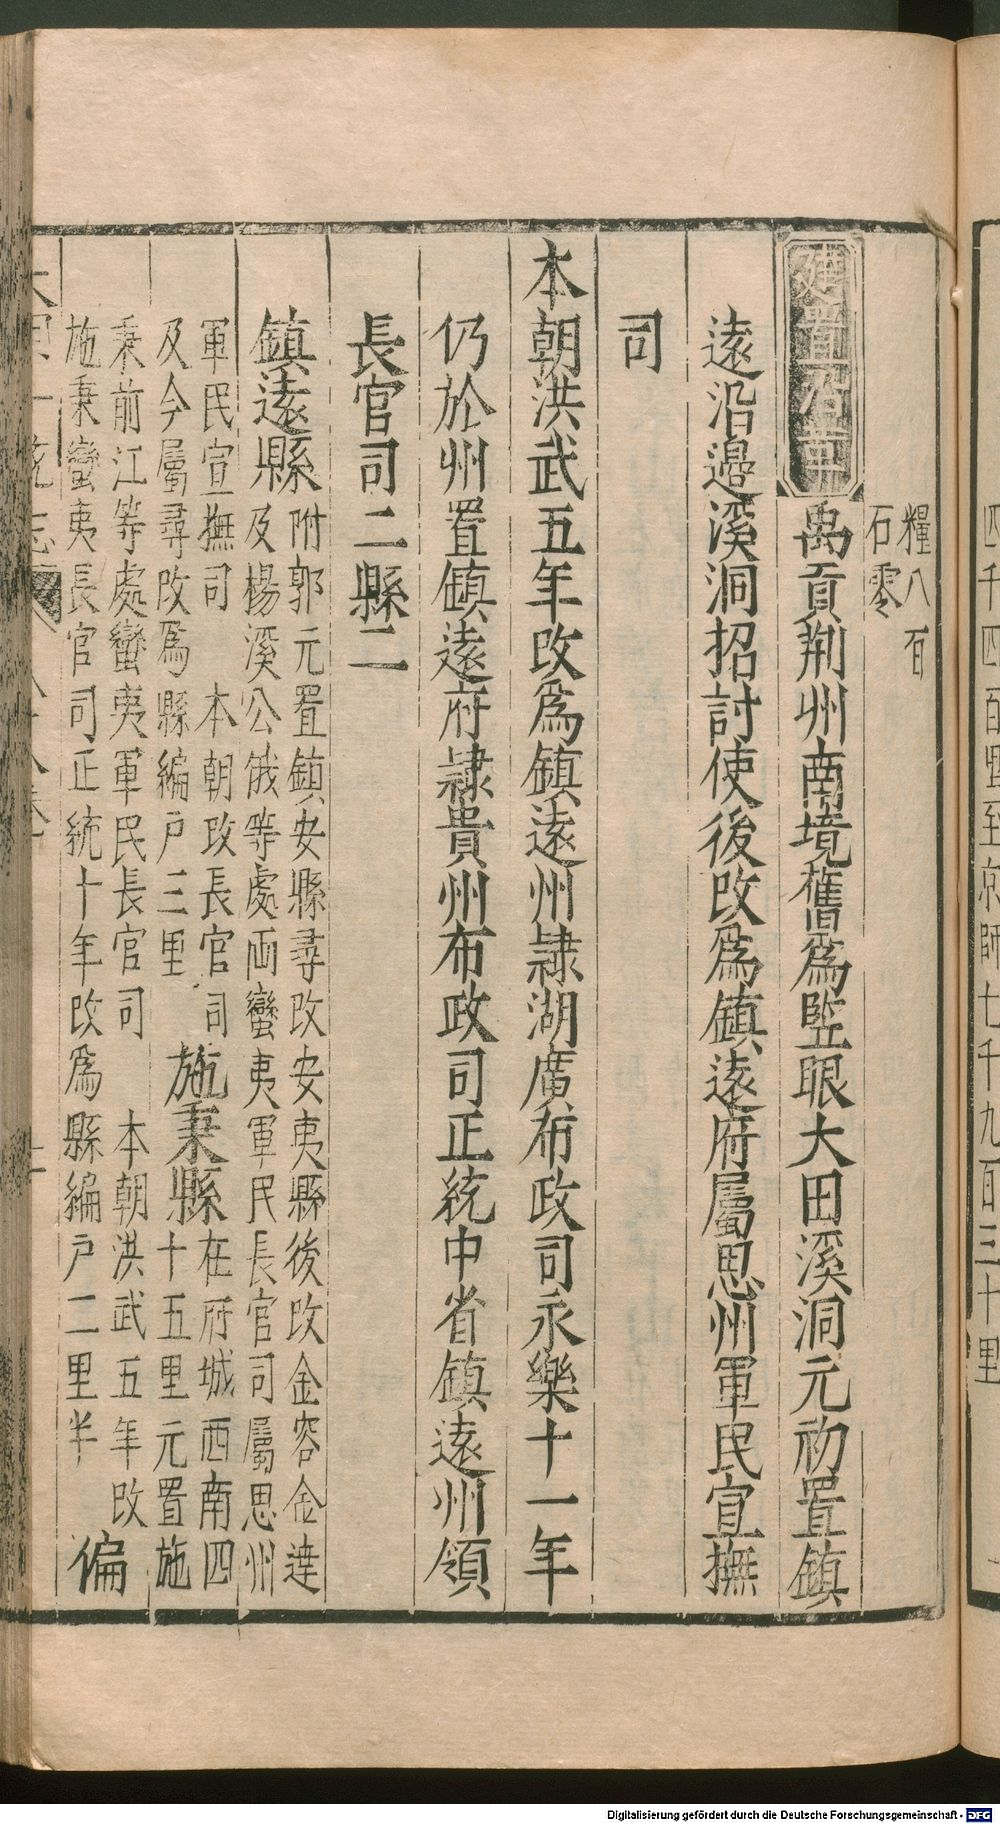 糧八百
石零
建置沿革
禹貢荆州南境舊爲監眼大田溪洞元初置鎮
遠沿邊溪洞招討使後改爲鎮遠府屬思州軍民宣撫
司
本朝洪武五年改爲鎮遠州隷湖廣布政司永樂十一年
仍於州置鎮遠府隷貴州布政司正統中省鎮遠州領
長官司二縣二
鎮遠縣
附郭元置鎮安縣尋改安夷縣後改金容金達
及楊溪公俄等處両蠻夷軍民長官司屬思州
軍民宣撫司 本朝改長官司
及今屬尋改爲縣編户三里
施秉縣
在府城西南四
十五里元置施
秉前江等處蠻夷軍民長官司 本朝洪武五年改
施秉蠻夷長官司正統十年改爲縣編户二里半
偏
四千四百里至京師七千九百三十里
Digitalisierung gefördert durch die Deutsche Forschungsgemeinschaft - DFG